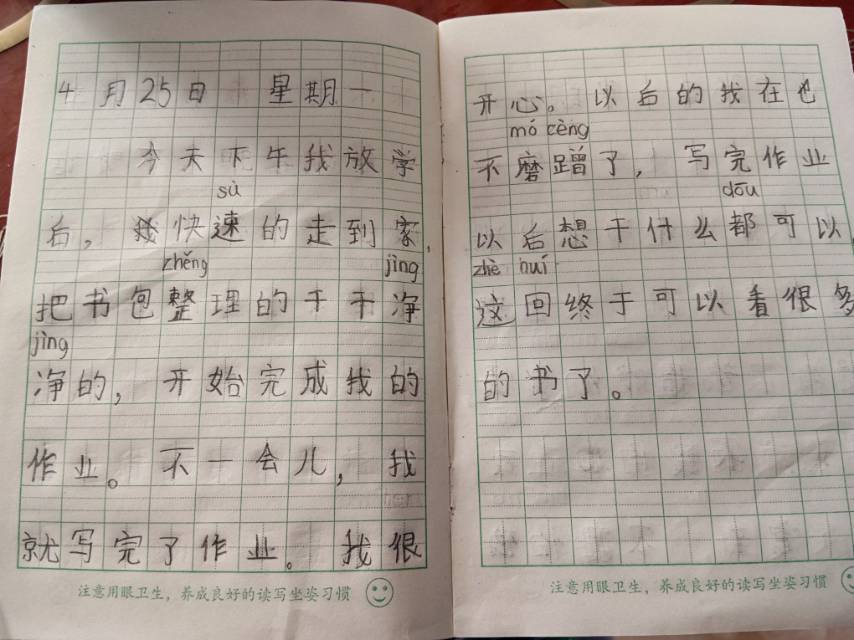 4月25日 星期一
今天下午我放学
sù
后，我快速的走到家，
zhěng jìng
把书包整理的干干净
jìng
净的，开始完成我的
作业。不一会儿，我
就写完了作业。我很
注意用眼卫生，养成良好的读写坐姿习惯
开心。以后的我在也
mó cèng
不磨蹭了，写完作业
dōu
以后想干什么都可以，
zhè huí
这回终于可以看很多
的书了。
注意用眼卫生，养成良好的读写坐姿习惯